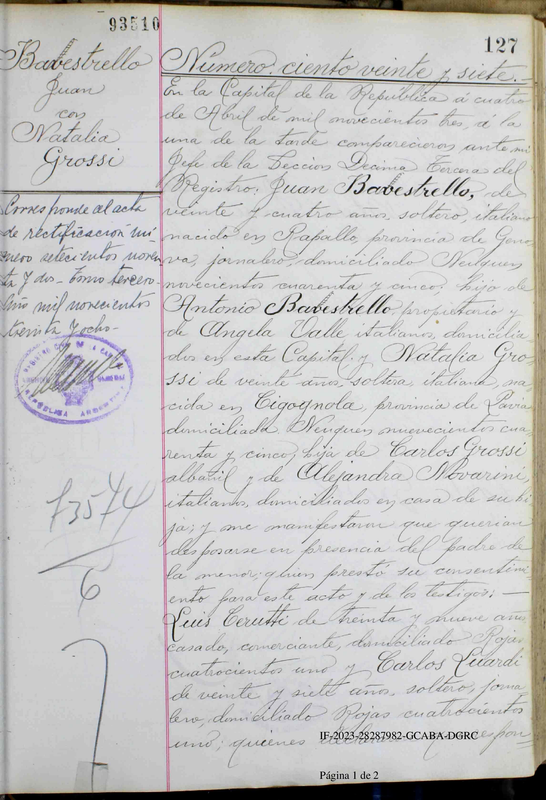 93510
127
Babestrello
Juan
con
Natalia
Grossi
Corresponde al acta
de rectificacion nú-
mero setecientos noven
ta y dos - tomo tercero-
Año mil novecientos
treinta y ocho-
REPUBLICA ARGENTINA
73574
6
Numero ciento veinte y siete.-
En la Capital de la Republica á cuatro
de Abril de mil novecientos tres, á la
una de la tarde comparecieron ante mi
Jefe de la Seccion Decima Tercera del
Registro: Juan Babestrello, de
veinte y cuatro años, soltero, italiano
nacido en Rapallo, provincia de Geno
va, jornalero, domiciliado Neuquen
novecientos cuarenta y cinco; hijo de
Antonio Babestrello, propietario y
de Angela Valle italianos, domicilia
dos en esta Capital; y Natalia Gro-
ssi de veinte años, soltera, italiana, na
cida en Cigognola, provincia de Pavia
domiciliada Neuquen nuevecientos cua
renta y cinco, hija de Carlos Grossi
albañil y de Alejandra Novarini,
italianos, domiciliados en casa de su hi
ja; y me manifestaron que querian
desposarse en presencia del padre de
la menor, quien prestó su consentimi
ento para este acto y de los testigos: -
Luis Cerutti de treinta y nueve años
casado, comerciante, domiciliado Rojas
cuatrocientos uno y Carlos Luardi
de veinte y siete años, soltero, jorna
lero, domiciliado Rojas cuatrocientos
uno; quienes
IF-2023-28287982-GCABA-DGRC
Página 1 de 2